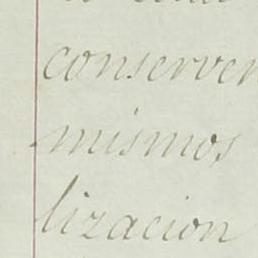 conserven
mismos
lizacion